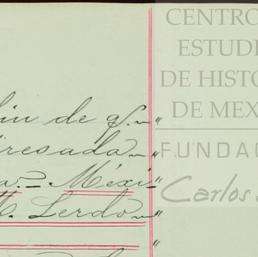 CENTRO
ESTUDI
DE HISTO
DE MEX
FUNDAC
Carlos
lin de q.—"
resada—"
a.— Méxi—"
M. Lerdo—"
"
"